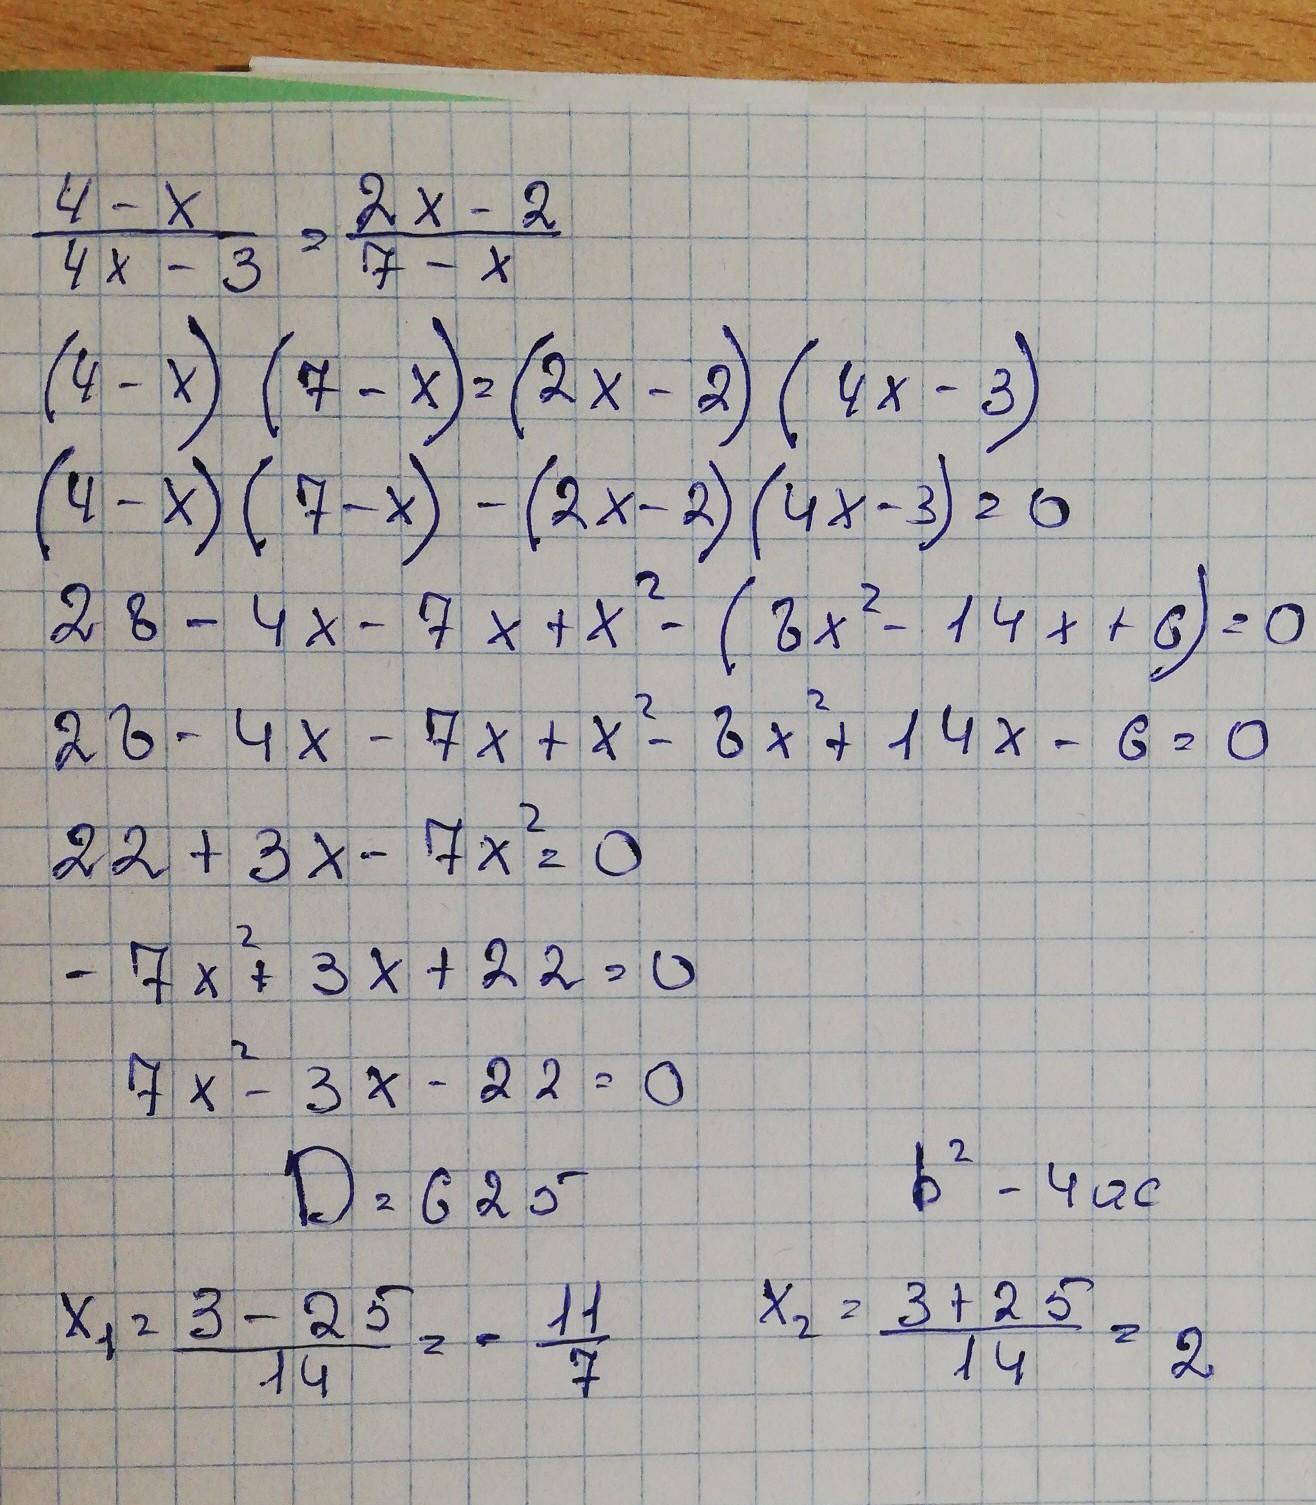 (4 - x)/(4x - 3) = (2x - 2)/(7 - x)
(4 - x) (7 - x) = (2x - 2) (4x - 3)
(4 - x)(7 - x) - (2x - 2)(4x - 3) = 0
28 - 4x - 7x + x² - (8x² - 14x + 6) = 0
28 - 4x - 7x + x² - 8x² + 14x - 6 = 0
22 + 3x - 7x² = 0
- 7x² + 3x + 22 = 0
7x² - 3x - 22 = 0
D = 625 b² - 4ac
x₁ = (3 - 25)/14 = - 11/7 x₂ = (3 + 25)/14 = 2